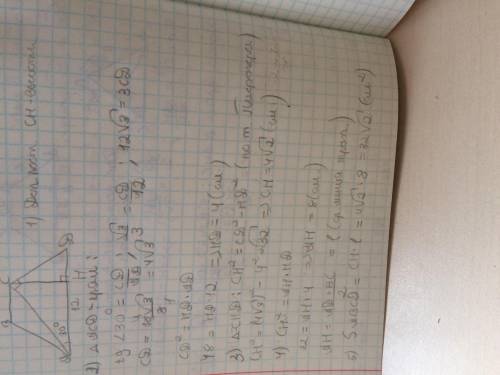 1) Доп. постр. CH - высота
30°
12
H
D
2) △ACD - прям.:
tg∠30° = CD/AD; √3/3 = CD/12; 12√3 = 3CD
CD = 12√3/3 = 4√3
CD² = HD·AD
48 = HD·12 => HD = 4 (см)
3) △CHD: CH² = CD² - HD² (по т. Пифагора)
CH² = (4√3)² - 4² = 32 => CH = 4√2 (см)
4) CH² = AH·HD
32 = AH·4 => AH = 8 (см)
AH = (AD+BC)/2 = ℓ (средняя
5) SABCD = CH·ℓ = 4√2·8 = 32√2 (см²)